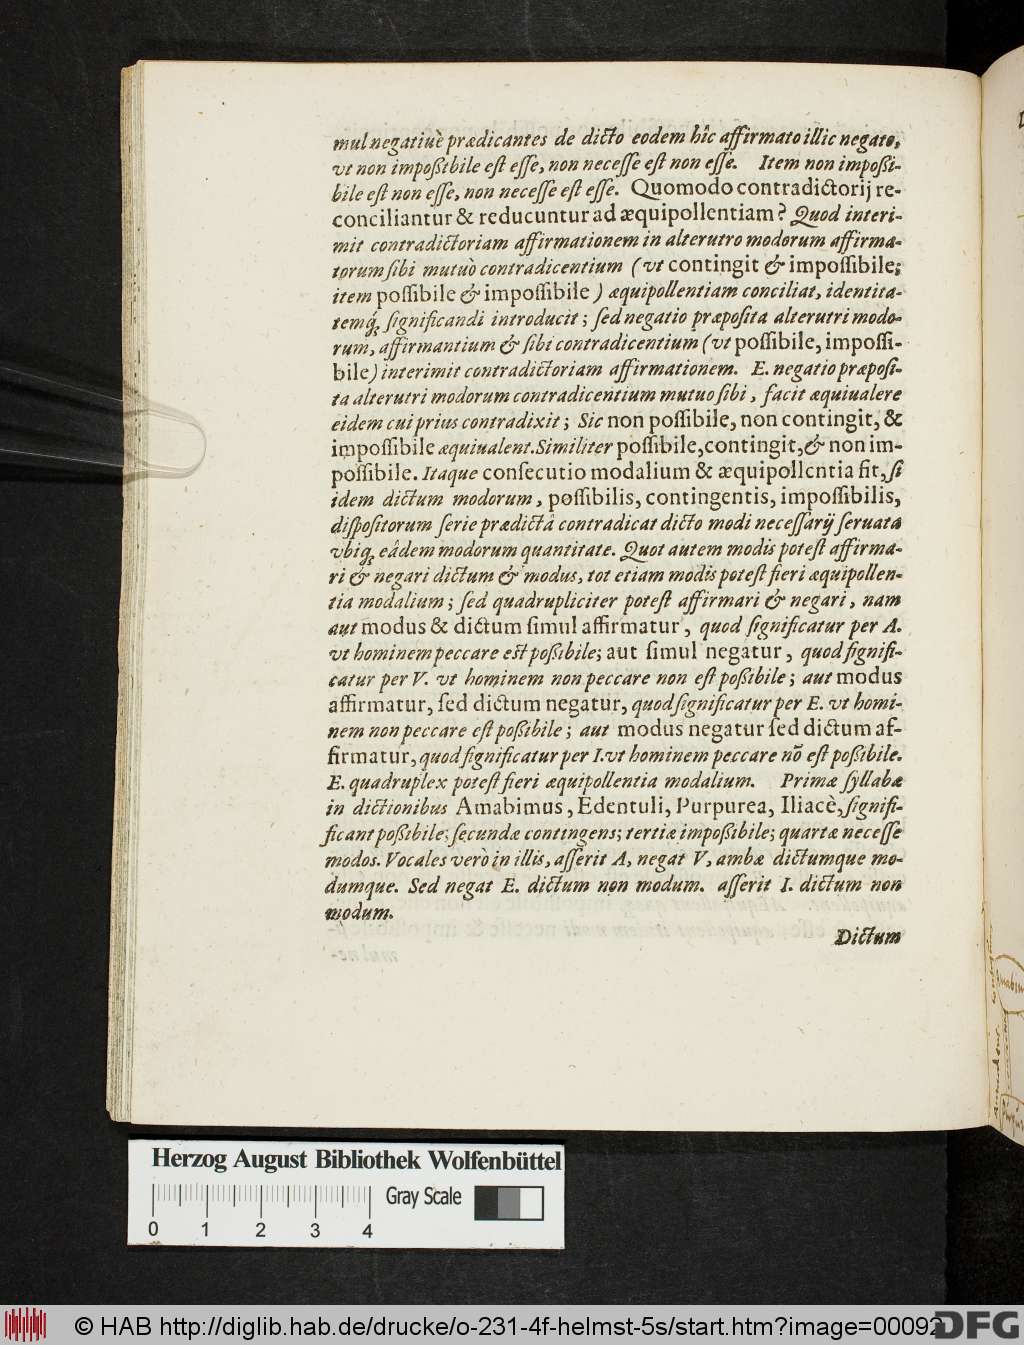 mul negatiuè prædicantes de dicto eodem hîc affirmato illic negato,
vt non impoßibile eſt eſſe, non neceſſe eſt non eſſe. Item non impoßi-
bile eſt non eſſe, non neceſſe eſt eſſe. Quomodo contradictorij re-
conciliantur & reducuntur ad æquipollentiam? Quod interi-
mit contradictoriam affirmationem in alterutro modorum affirma-
torum ſibi mutuò contradicentium (vt contingit & impoſſibile;
item poſſibile & impoſſibile) æquipollentiam conciliat, identita-
temq́; ſignificandi introducit; ſed negatio præpoſita alterutri modo-
rum, affirmantium & ſibi contradicentium (vt poſſibile, impoſſi-
bile) interimit contradictoriam affirmationem. E. negatio præpoſi-
ta alterutri modorum contradicentium mutuo ſibi, facit æquiualere
eidem cui prius contradixit; Sic non poſſibile, non contingit, &
impoſſibile æquiualent. Similiter poſſibile, contingit, & non im-
poſſibile. Itaque conſecutio modalium & æquipollentia fit, ſi
idem dictum modorum, poſſibilis, contingentis, impoſſibilis,
diſpoſitorum ſerie prædictâ contradicat dicto modi neceſſarij ſeruata
vbiq; eâdem modorum quantitate. Quot autem modis poteſt affirma-
ri & negari dictum & modus, tot etiam modis poteſt fieri æquipollen-
tia modalium; ſed quadrupliciter poteſt affirmari & negari, nam
aut modus & dictum ſimul affirmatur, quod ſignificatur per A.
vt hominem peccare eſt poßibile; aut ſimul negatur, quod ſignifi-
catur per V. vt hominem non peccare non eſt poßibile; aut modus
affirmatur, ſed dictum negatur, quod ſignificatur per E. vt homi-
nem non peccare eſt poßibile; aut modus negatur ſed dictum af-
firmatur, quod ſignificatur per I. vt hominem peccare nõ eſt poßibile.
E. quadruplex poteſt fieri æquipollentia modalium. Primæ ſyllabæ
in dictionibus Amabimus, Edentuli, Purpurea, Iliacè, ſignifi-
ficant poßibile; ſecundæ contingens; tertiæ impoßibile; quartæ neceſſe
modos. Vocales verò in illis, aſſerit A, negat V, ambæ dictumque mo-
dumque. Sed negat E. dictum non modum. aſſerit I. dictum non
modum.
Dictum
Herzog August Bibliothek Wolfenbüttel
Gray Scale
0 1 2 3 4
© HAB http://diglib.hab.de/drucke/o-231-4f-helmst-5s/start.htm?image=00092
DFG